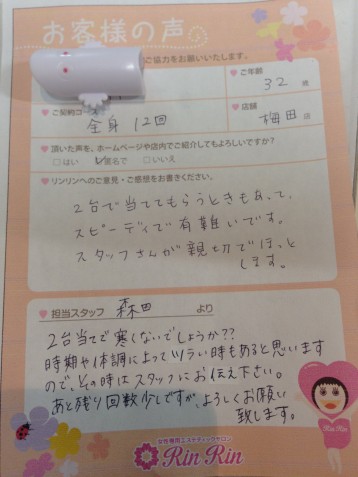 お客様の声
ご協力をお願いいたします。
ご年齢
32 歳
ご契約コース
全身 12回
店舗
梅田 店
頂いた声を、ホームページや店内でご紹介してもよろしいですか?
はい 匿名で いいえ
リンリンへのご意見・ご感想をお書きください。
2台で当ててもらうときもあって、
スピーディで有難いです。
スタッフさんが親切でほっと
します。
担当スタッフ 森田 より
2台当てで寒くないでしょうか??
時期や体調によってツラい時もあると思います
ので、その時はスタッフにお伝え下さい。
あと残り回数少しですが、よろしくお願い
致します。
Rin Rin
女性専用エステティックサロン
Rin Rin